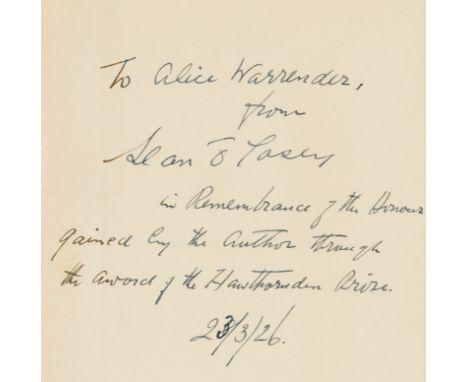 To Alice Warrender,
from
Sean O'Casey
in Remembrance of the Honour
gained by the Author through
the award of the Hawthornden Prize.
23/3/26.